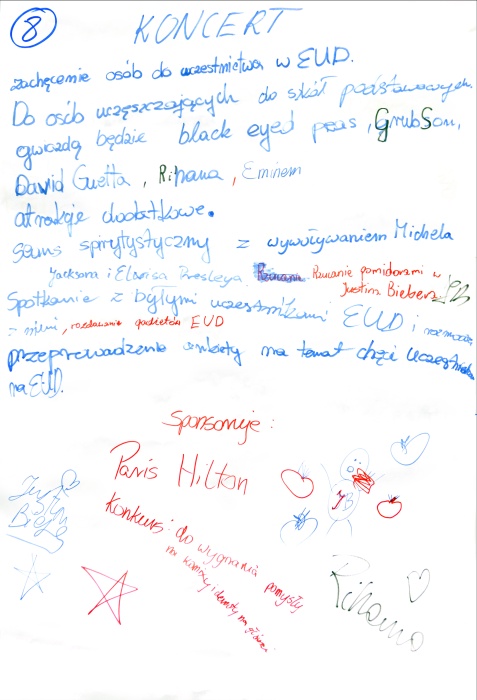 8 KONCERT
zachęcenie osób do uczestnictwa w EUD.
Do osób uczęszczających do szkół podstawowych.
gwiazdą będzie black eyed peas, GrubSon,
David Guetta, Rihana, Eminem
atrakcje dodatkowe.
Seans spirytystyczny z wywoływaniem Michela
Jacksona i Elvisa Presleya Rzucanie pomidorami w
Justina Biebera
Spotkanie z byłymi uczestnikami EUD i rozmowa
z nimi, rozdawanie gadżetów EUD
przeprowadzenie ankiety na temat chęci uczestnic
na EUD.
Sponsoruje:
Paris Hilton
Konkurs: do wygrania pomysły
na
Justin
Bieber
JB
Rihanna